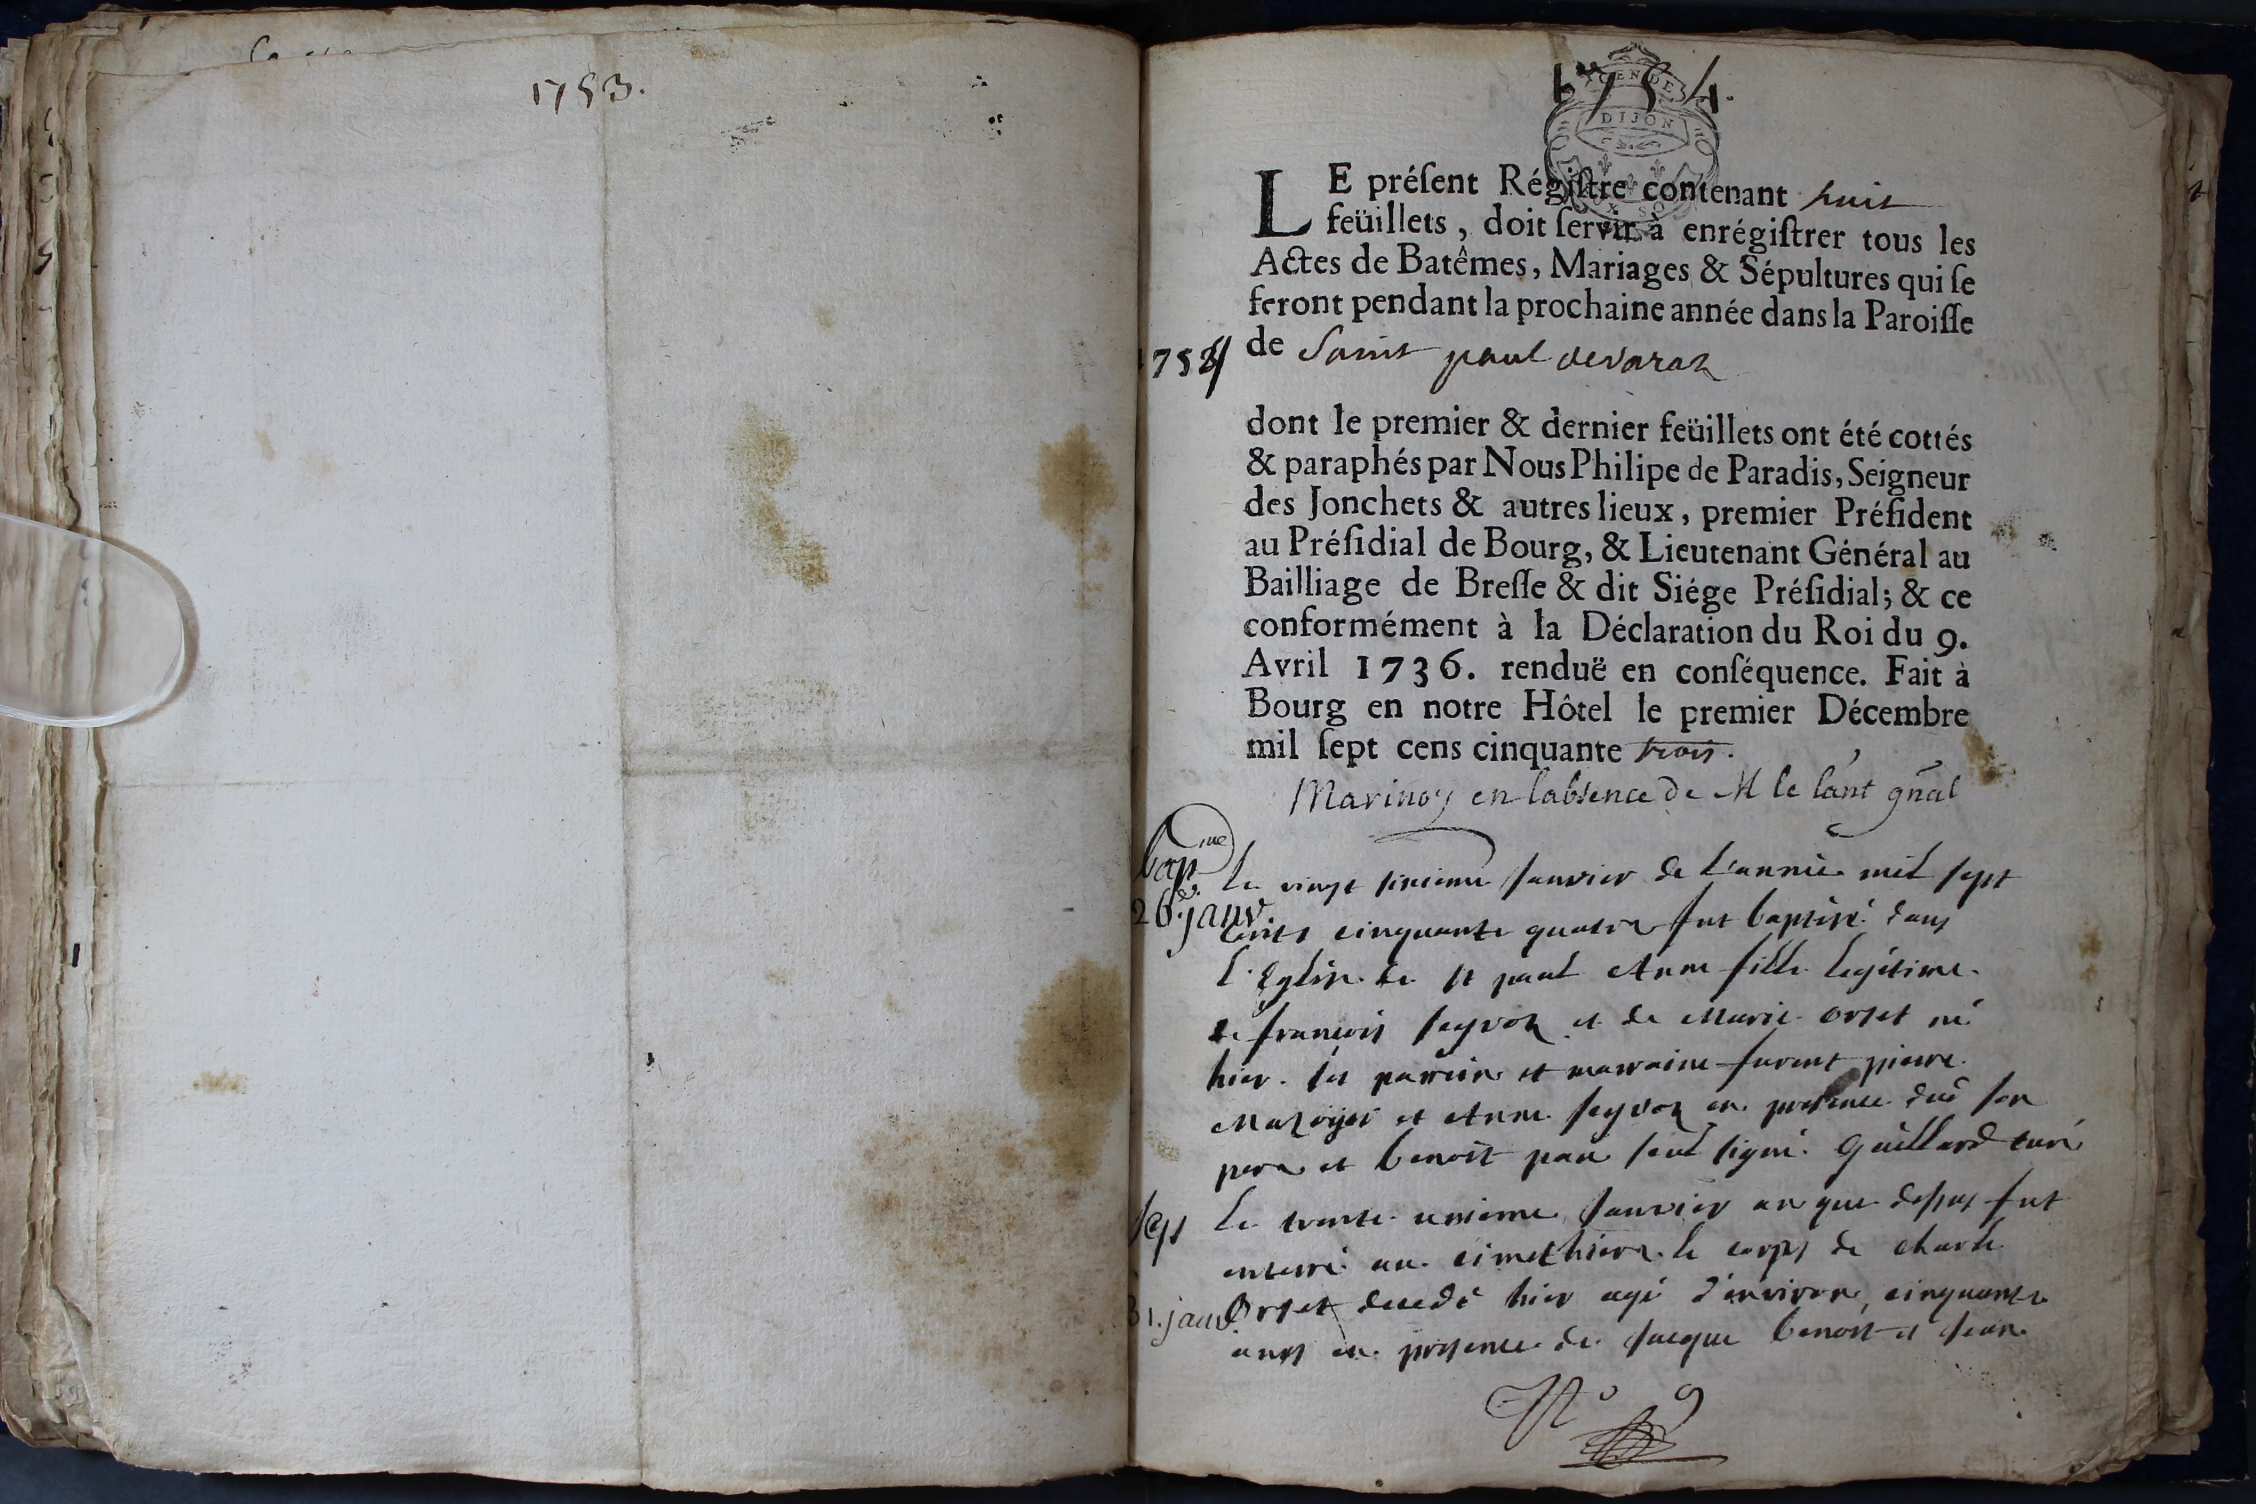 1753.
1754.
GEN DE
DIJON
LE préſent Régiſtre contenant huit
feüillets, doit ſervir à enrégiſtrer tous les
Actes de Batêmes, Mariages & Sépultures qui ſe
feront pendant la prochaine année dans la Paroiſſe
1754
de Saint paul devarax
dont le premier & dernier feüillets ont été cottés
& paraphés par Nous Philipe de Paradis, Seigneur
des Jonchets & autres lieux, premier Préſident
au Préſidial de Bourg, & Lieutenant Général au
Bailliage de Breſſe & dit Siége Préſidial; & ce
conformément à la Déclaration du Roi du 9.
Avril 1736. renduë en conſéquence. Fait à
Bourg en notre Hôtel le premier Décembre
mil ſept cens cinquante trois.
en labsence de M le lãnt gñal
bapme
26e janv.
1
Le vingt sixieme Janvier de L'année mil sept
cents cinquante quatre fut baptisé dans
L'Eglise de st paul Anne fille legitime
de françois et de Marie orset né
hier. ses parrein et marraine furent pierre
et Anne en presence du son
pere et benoit seul signé. Guillard curé
sep
31. janv
Le trente unieme Janvier an que dessus fut
enterré au cimethiere le corps de charle
Orset decedé hier agé d'environ cinquante
ans en presence de Jacque benoit et Jean